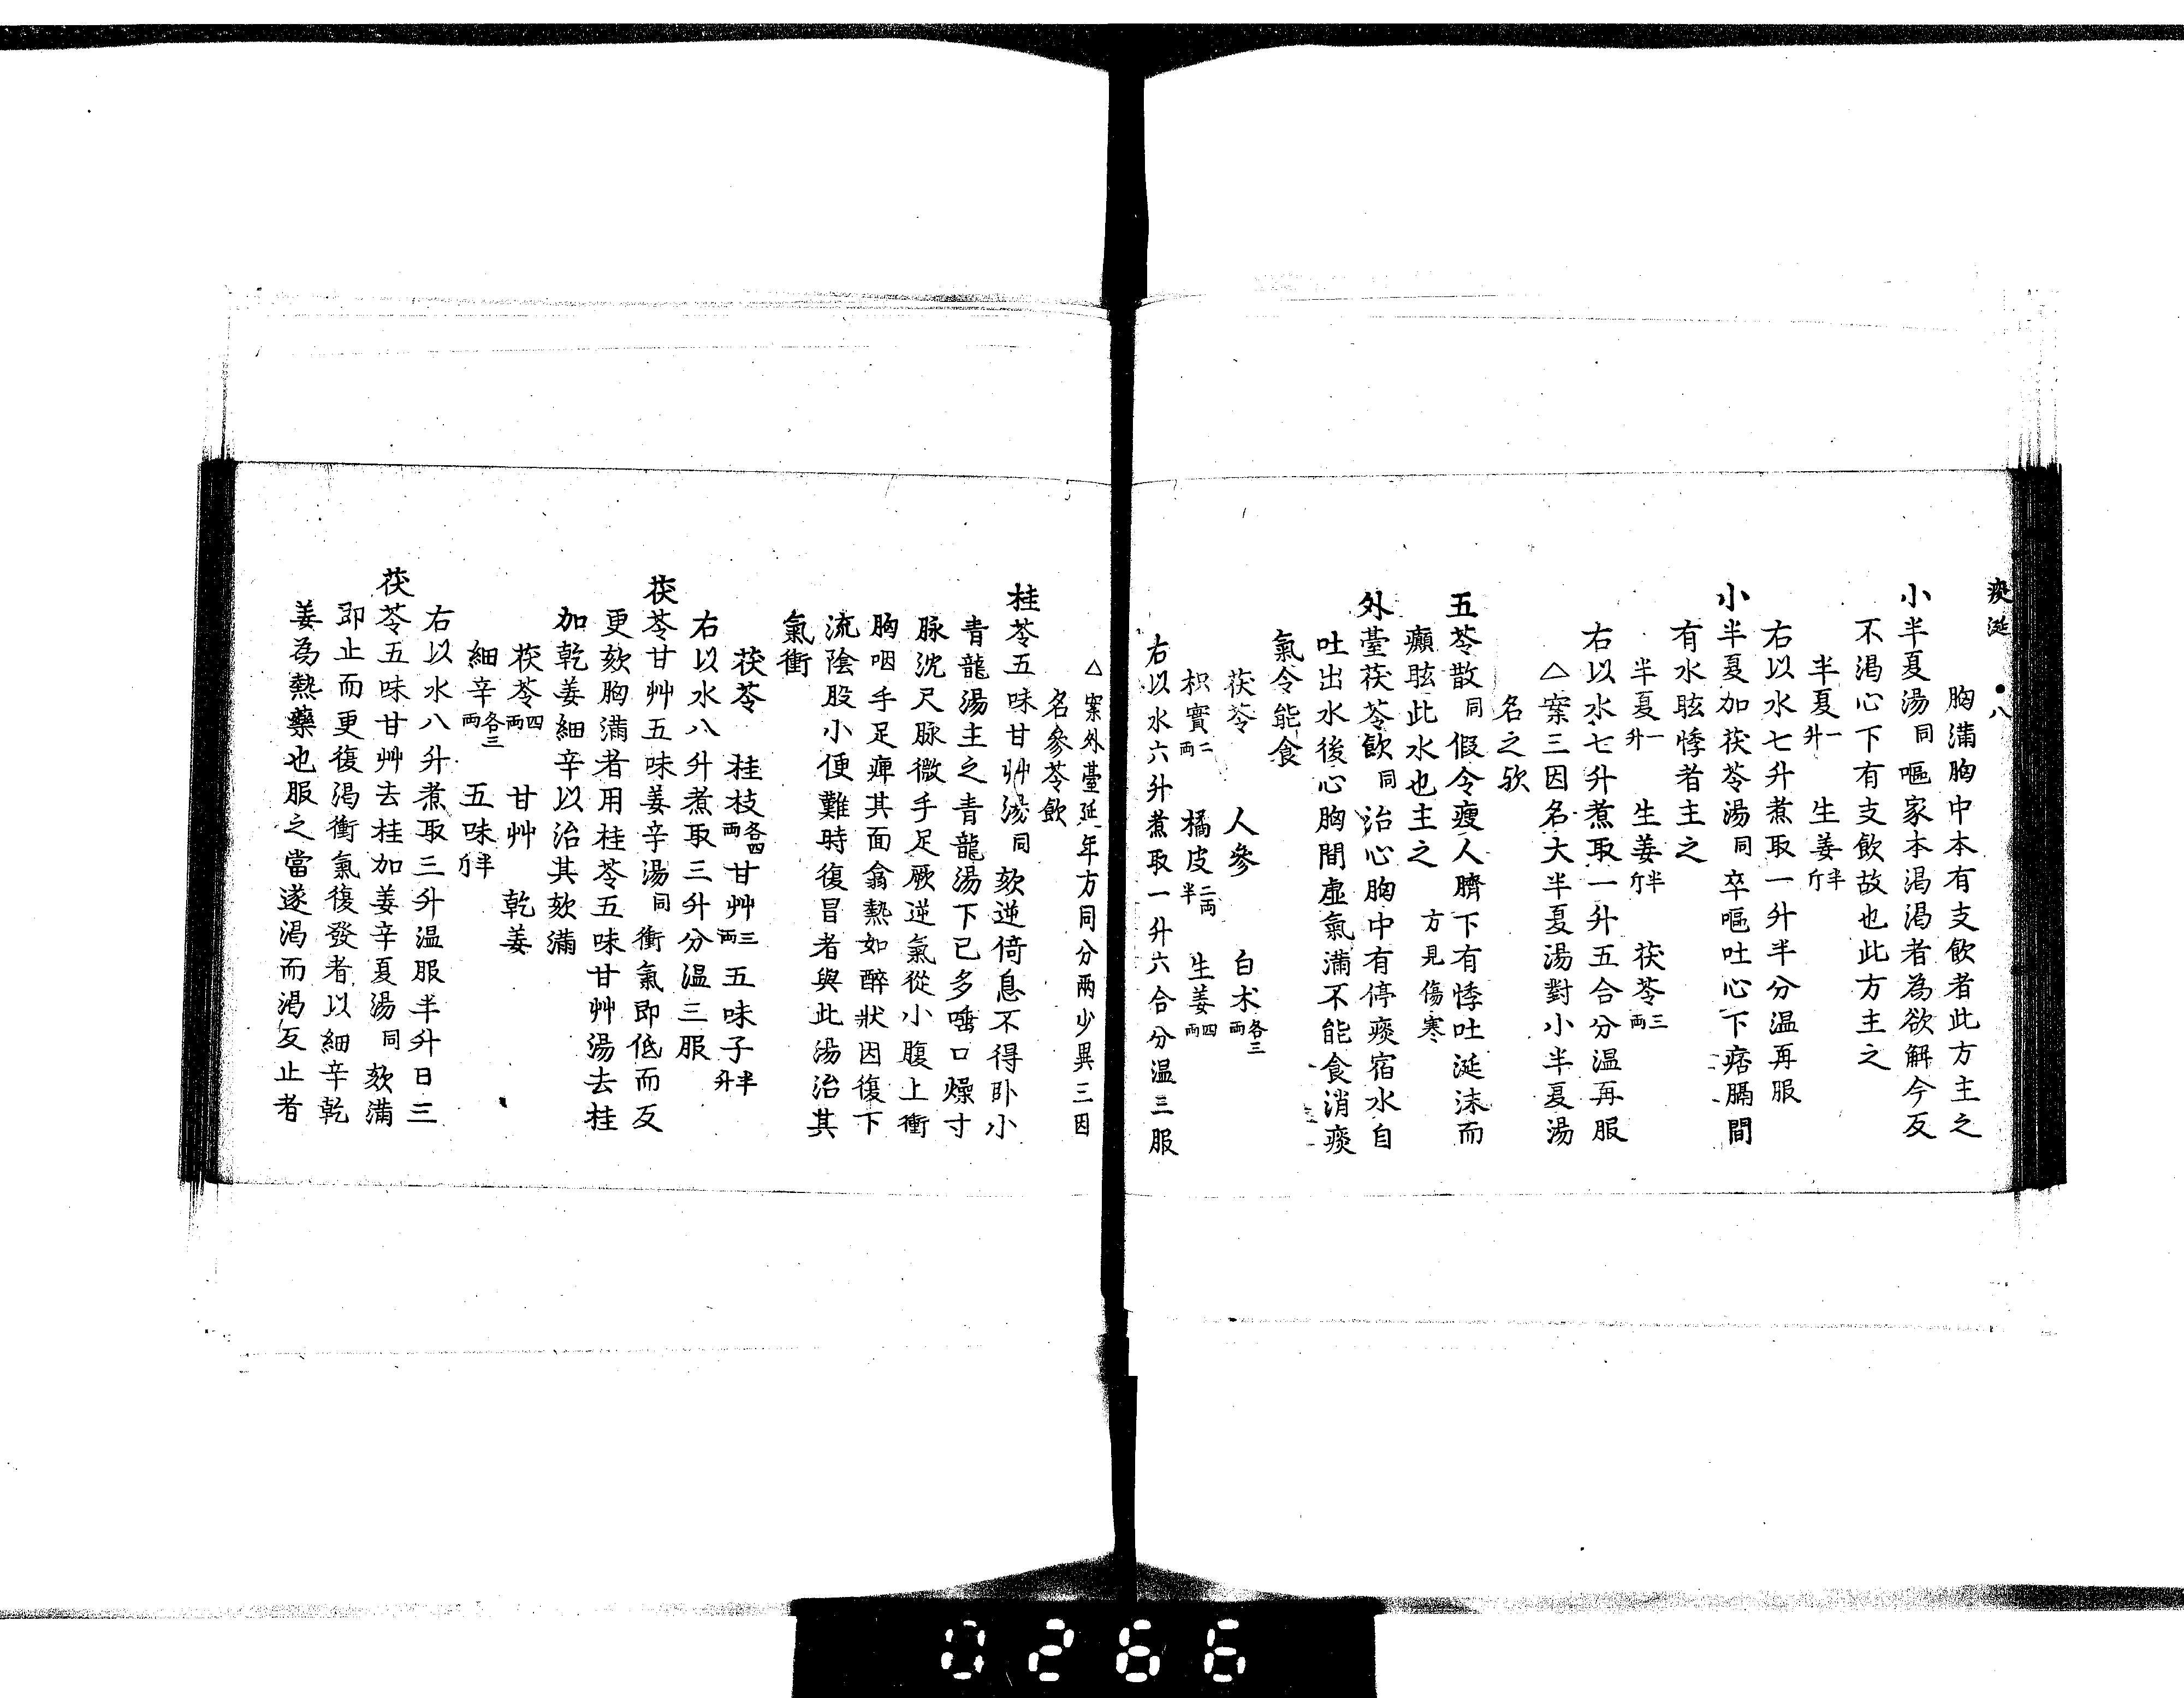 痰涎 ●八
胸滿胸中本有支飲者此方主之
小半夏湯同嘔家本渴渴者為欲解今反
不渴心下有支飲故也此方主之
半夏一升 生姜半斤
右以水七升煮取一升半分温再服
小半夏加茯苓湯同卒嘔吐心下痞膈間
有水眩悸者主之
半夏一升 生姜半斤 茯苓三両
右以水七升煮取一升五合分温再服
△案三因名大半夏湯對小半夏湯
名之欤
五苓散同假令瘦人臍下有悸吐涎沫而
癲眩此水也主之 方見傷寒
外臺茯苓飲同治心胸中有停痰宿水自
吐出水後心胸間虛氣滿不能食消痰
氣令能食
茯苓 人參 白朮各三両
枳實二両 橘皮二両半 生姜四両
右以水六升煮取一升六合分温三服
△案外臺延年方同分兩少異三因
名參苓飲
桂苓五味甘艸湯同欬逆倚息不得卧小
青龍湯主之青龍湯下已多唾口燥寸
脉沈尺脉微手足厥逆氣從小腹上衝
胸咽手足痺其面翕熱如醉狀因復下
流陰股小便難時復冒者與此湯治其
氣衝
茯苓 桂枝各四両 甘艸三両 五味子半升
右以水八升煮取三升分温三服
茯苓甘艸五味姜辛湯同衝氣即低而反
更欬胸滿者用桂苓五味甘艸湯去桂
加乾姜細辛以治其欬滿
茯苓四両 甘艸 乾姜
細辛各三両 五味半斤
右以水八升煮取三升温服半升日三
茯苓五味甘艸去桂加姜辛夏湯同欬滿
即止而更復渴衝氣復發者以細辛乾
姜為熱藥也服之當遂渴而渴反止者
0266